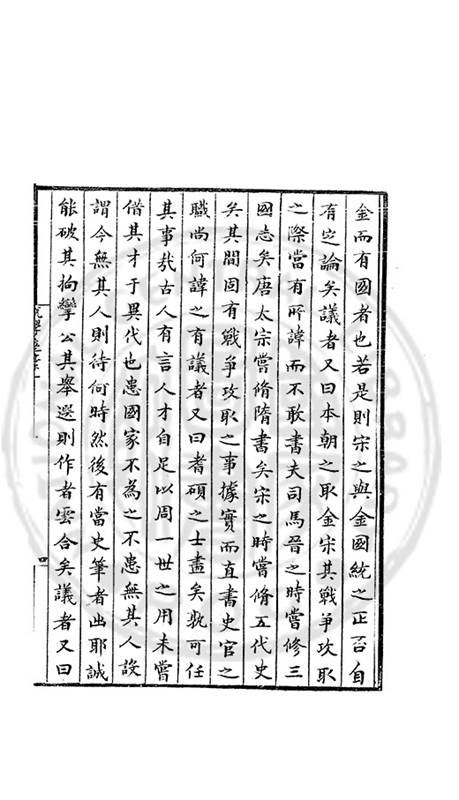 金而有國者也若是則宋之與金國統之正否自
有定論矣議者又曰本朝之取金宋其戰爭攻取
之際當有所諱而不敢書夫司馬晉之時嘗修三
國志矣唐太宗嘗脩隋書矣宋之時嘗脩五代史
矣其間固有戰爭攻取之事據實而直書史官之
職尚何諱之有議者又曰耆碩之士盡矣孰可任
其事哉古人有言人才自足以周一世之用未嘗
借其才于異代也患國家不為之不患無其人設
謂今無其人則待何時然後有當史筆者出耶誠
能破其拘攣公其舉選則作者雲合矣議者又曰
四